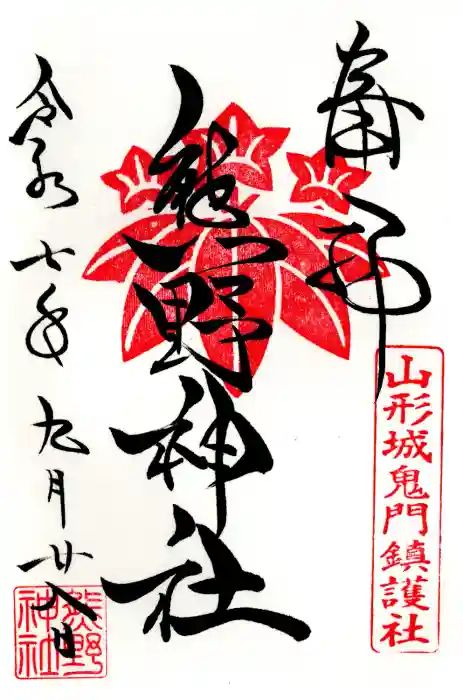 奉拝
山形城鬼門鎮護社
熊野神社
令和七年九月廿八日
熊野
神社